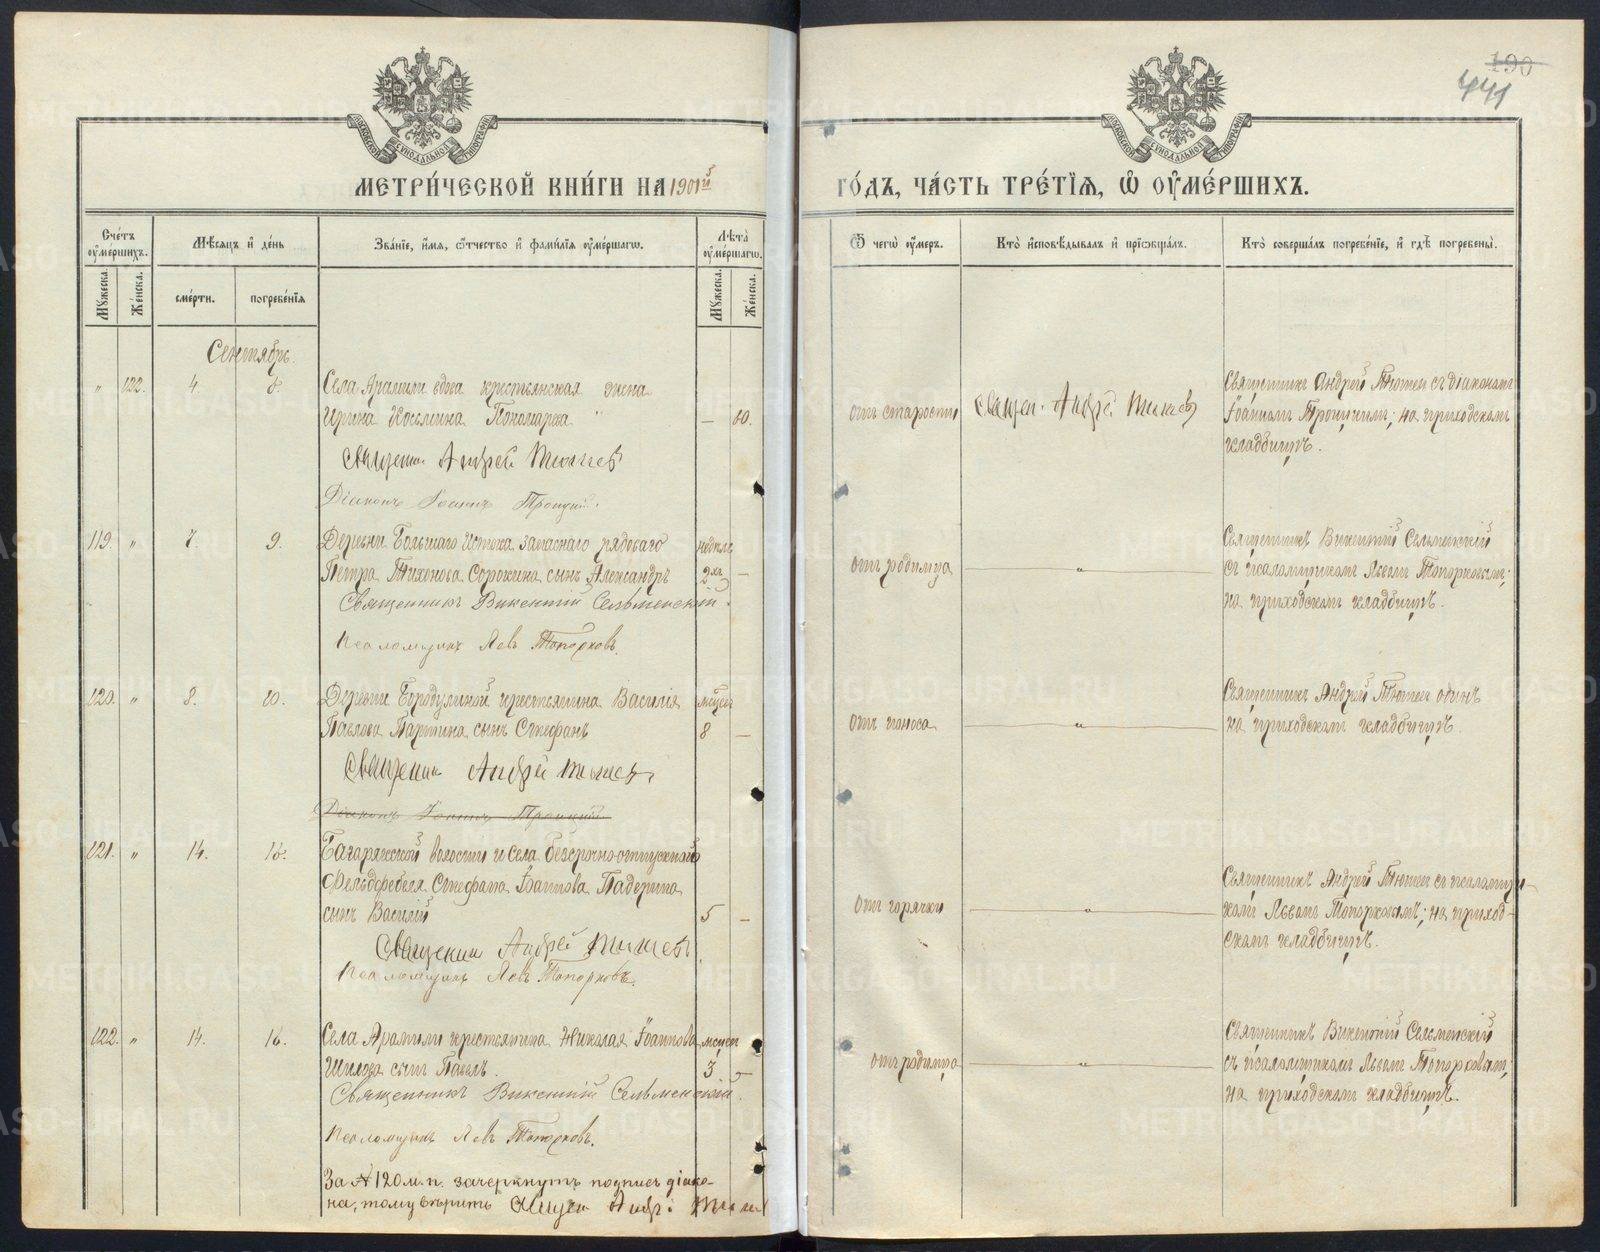 190
441
МОСКОВСКОЙ СѴНОДАЛЬНОЙ ТИПОГРАФІИ
МОСКОВСКОЙ СѴНОДАЛЬНОЙ ТИПОГРАФІИ
МЕТРИ́ЧЕСКОЙ КНИ́ГИ НА 1901й
ГО́ДЪ, ЧА́СТЬ ТРЕ́ТІѦ, Ѡ҆ ОУ҆МЕ́РШИХЪ.
Сче́тъ оу҆ме́ршихъ.
Мѣ́сѧцъ и҆ де́нь
Зва́нїе, и҆́мѧ, ѻ҆́тчество и҆ фами́лїѧ оу҆ме́ршагѡ.
Лѣ́та оу҆ме́ршагѡ.
Мꙋ́жеска.
Же́нска.
сме́рти.
погребе́нїѧ
Мꙋ́жеска.
Же́нска.
Ѿ чегѡ̀ оу҆́меръ.
Кто̀ и҆сповѣ́дывалъ и҆ прїѡбща́лъ.
Кто̀ соверша́лъ погребе́нїе, и҆ гдѣ̀ погребены̀.
Сентябрь.
" 122. 4. 8. Села Арамили вдова крестьянская жена
Ирина Косьмина Пономарева — 60.
Священ. Андрей Тюшев
Діаконъ Іоаннъ Троицкій.
отъ старости
Священ. Андрей Тюшев
Священникъ Андрей Тюшев съ діакономъ
Іоанномъ Троицкимъ; на приходскомъ
кладбищѣ.
119. " 7. 9. Деревни Большаго Истока запаснаго рядоваго недѣль
Петра Тихонова Сорокина сынъ Александръ 2хъ —
Священникъ Викентій Сельменскій.
Псаломщикъ Левъ Топорковъ.
отъ родимца — " —
Священникъ Викентій Сельменскій
съ псаломщикомъ Львомъ Топорковымъ;
на приходскомъ кладбищѣ.
120. " 8. 10. Деревни Бородулиной крестьянина Василія мѣсяц
Павлова Паргина сынъ Стефанъ 8 —
Священник Андрей Тюшевъ
Діаконъ Іоаннъ Троицкій
отъ поноса — " —
Священникъ Андрей Тюшев одинъ
на приходскомъ кладбищѣ.
121. " 14. 15. Багарякской волости и села безсрочно-отпускнаго
Фельдфебеля Стефана Іоаннова Падерина
сынъ Василій 5 —
Священник Андрей Тюшевъ
Псаломщикъ Левъ Топорковъ.
отъ горячки — " —
Священникъ Андрей Тюшев съ псаломщи-
комъ Львомъ Топорковымъ; на приход-
скомъ кладбищѣ.
122. " 14. 16. Села Арамили крестьянина Николая Іоаннова мѣсяц
Шилова сынъ Павелъ. 3 —
Священникъ Викентій Сельменскій.
Псаломщикъ Левъ Топорковъ.
отъ родимца — " —
Священникъ Викентій Сельменскій
съ псаломщикомъ Львомъ Топорковым;
на приходскомъ кладбищѣ.
За № 120 м.п. зачеркнутъ подпись діако-
на, тому вѣрить Священ Андр
METRIKI.GASO-URAL.RU